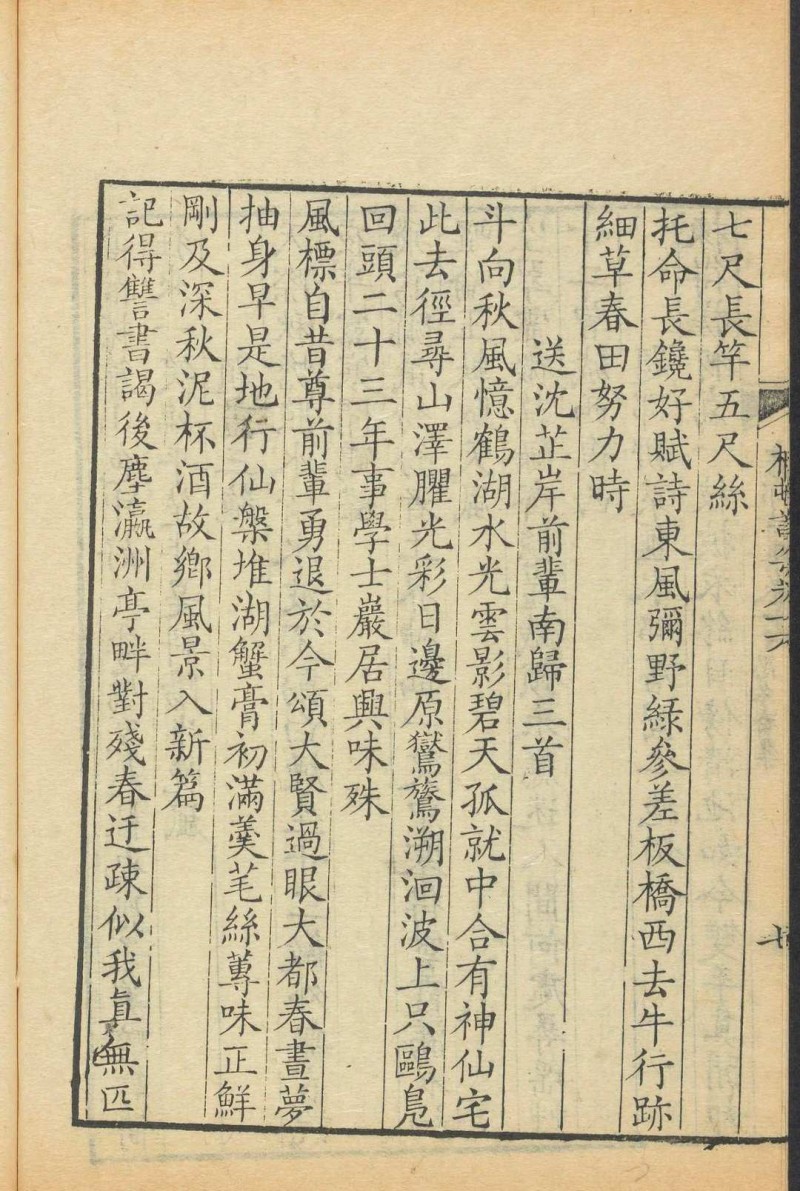 七尺長竿五尺絲
托命長鑱好賦詩東風彌野綠參差板橋西去牛行跡
細草春田努力時
送沈芷岸前輩南歸三首
斗向秋風憶鶴湖水光雲影碧天孤就中合有神仙宅
此去徑尋山澤臞光彩日邊原鸑鷟溯洄波上只鷗鳧
回頭二十三年事學士巖居興味殊
風標自昔尊前輩勇退於今頌大賢過眼大都春晝夢
抽身早是地行仙槃堆湖蟹膏初滿羹芼絲蓴味正鮮
剛及深秋泥杯酒故鄉風景入新篇
記得讐書謁後塵瀛洲亭畔對殘春迂疎似我眞無匹